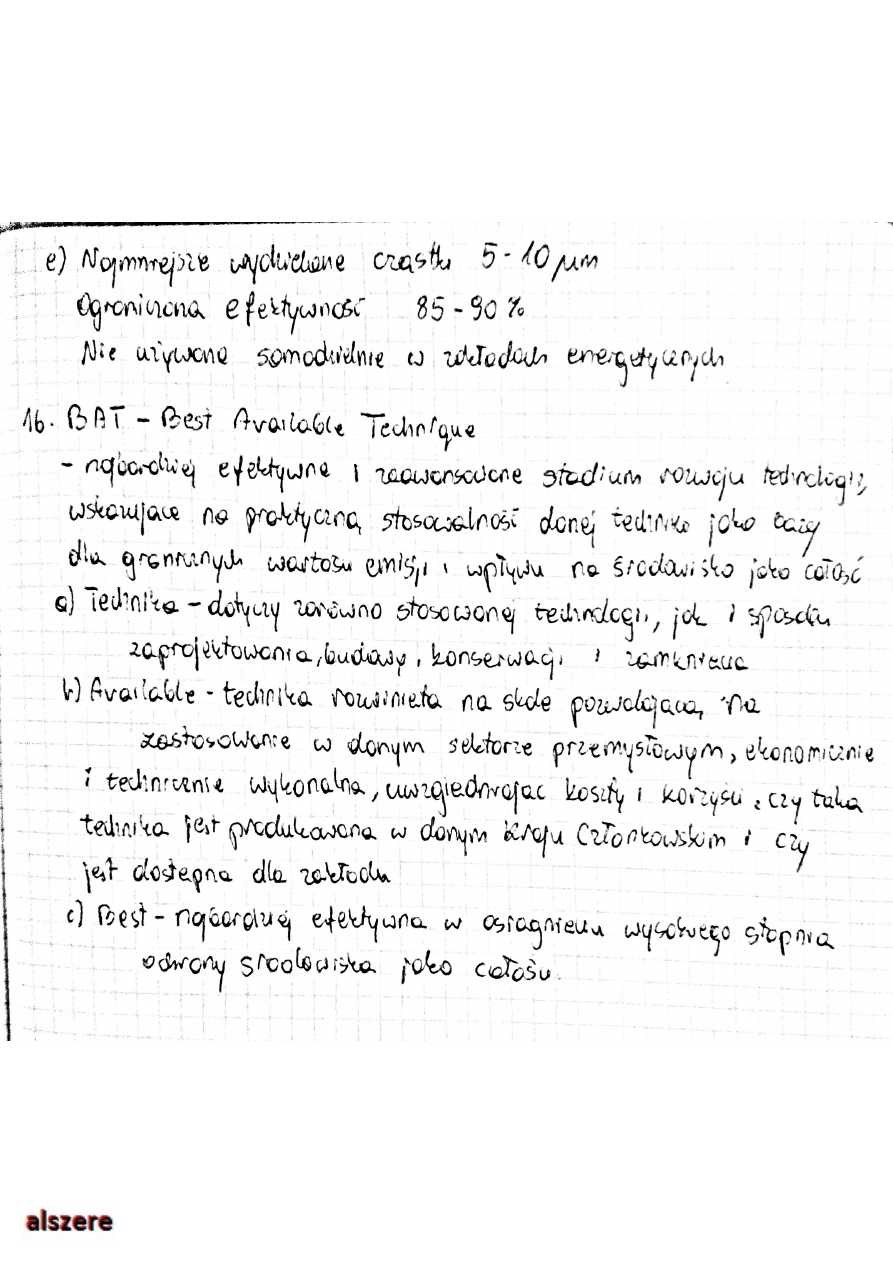 e) Najmniejsze wydzielone cząstki 5-10 μm
Ograniczona efektywność 85-90%
Nie używane samodzielnie w zakładach energetycznych
16. BAT - Best Available Technique
- najbardziej efektywne i zaawansowane stadium rozwoju technologii,
wskazujące na praktyczną stosowalność danej techniki jako bazy
dla granicznych wartości emisji i wpływu na środowisko jako całość
a) Technika - dotyczy zarówno stosowanej technologii, jak i sposobu
zaprojektowania, budowy, konserwacji i zamknięcia
b) Available - technika rozwinięta na skalę pozwalającą na
zastosowanie w danym sektorze przemysłowym, ekonomicznie
i technicznie wykonalna, uwzględniając koszty i korzyści, czy taka
technika jest produkowana w danym Kraju Członkowskim i czy
jest dostępna dla zakładu
c) Best - najbardziej efektywna w osiągnięciu wysokiego stopnia
ochrony środowiska jako całości.
alszere